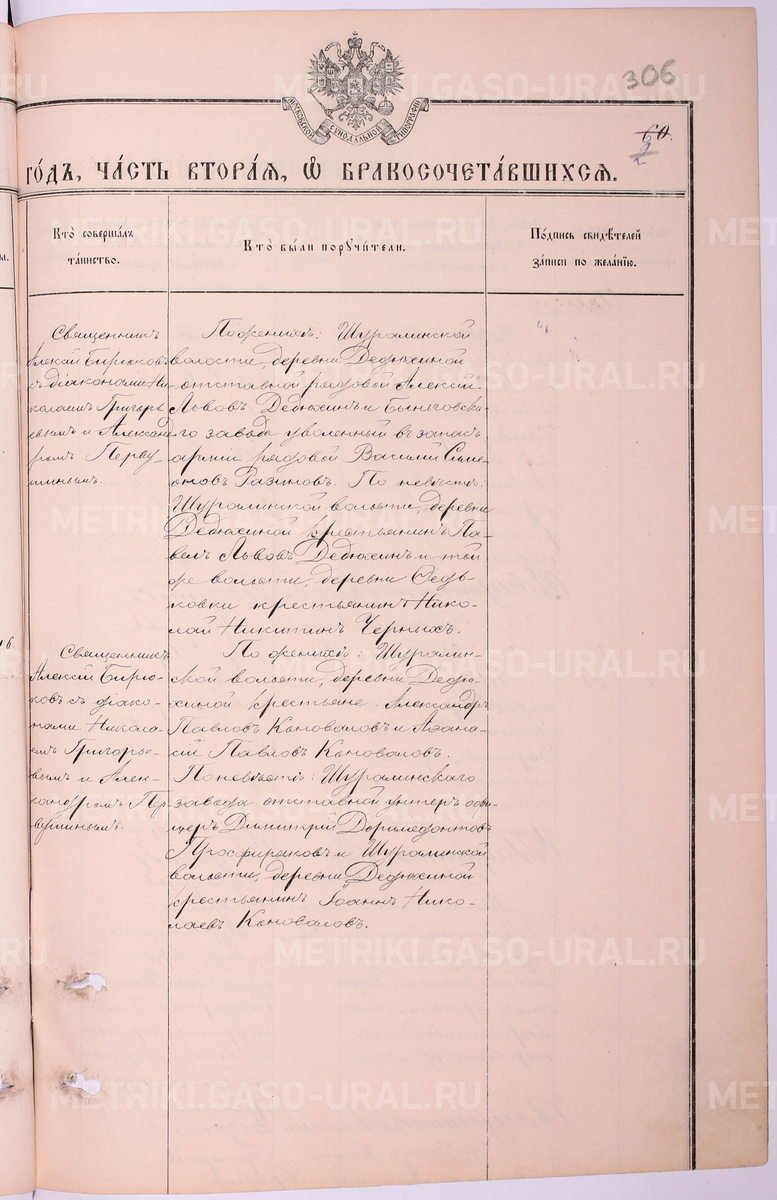 306
МОСКОВСКОЙ СѴНОДАЛЬНОЙ ТИПОГРАФІИ
60.
2
ГО́ДЪ, ЧА́СТЬ ВТОРА́Я, Ѡ БРАКОСОЧЕТА́ВШИХСЯ.
Кто̀ соверша́лъ
та́инство.
Кто̀ бы́ли порꙋчи́тели.
По́дпись свидѣ́телей
за́писи по жела́нїю.
ы.
Священникъ
Алексій Бирюковъ
съ діаконами Ни-
колаемъ Григорь-
евымъ и Александ-
ромъ Перву-
шинымъ.
По женихѣ: Шуралинской
волости, деревни Дедюхиной
отставной рядовой Алексій
Львовъ Дедюхинъ и Быньговска-
го завода уволенный въ запасъ
арміи рядовой Василій Симе-
оновъ Разиновъ. По невѣстѣ:
Шуралинской волости, деревни
Дедюхиной крестьянинъ Па-
велъ Львовъ Дедюхинъ и той
же волости, деревни Федь-
ковки крестьянинъ Нико-
лай Никитинъ Черныхъ.
16
Священникъ
Алексій Бирю-
ковъ съ діако-
нами Никола-
емъ Григорье-
вымъ и Алек-
сандромъ Пер-
вушинымъ.
По женихѣ: Шуралин-
ской волости, деревни Дедю-
хиной крестьяне: Александръ
Павловъ Коноваловъ и Афана-
сій Павловъ Коноваловъ.
По невѣстѣ: Шуралинскаго
завода отставной унтеръ офи-
церъ Димитрій Доримедонтовъ
Просфиряковъ и Шуралинской
волости, деревни Дедюхиной
крестьянинъ Іоаннъ Нико-
лаевъ Коноваловъ.
METRIKI.GASO-URAL.RU